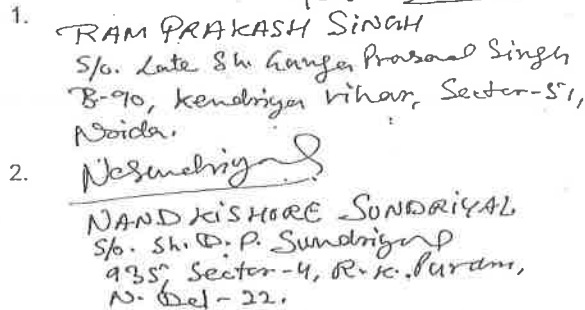 1.
RAM PRAKASH SINGH
S/o. Late Sh. Ganga Prasad Singh
B-90, Kendriya Vihar, Sector-51,
Noida.
2. NKSundriyal
NAND KISHORE SUNDRIYAL
S/o. Sh. D. P. Sundriyal
935, Sector-4, R.K. Puram,
N. Del-22.